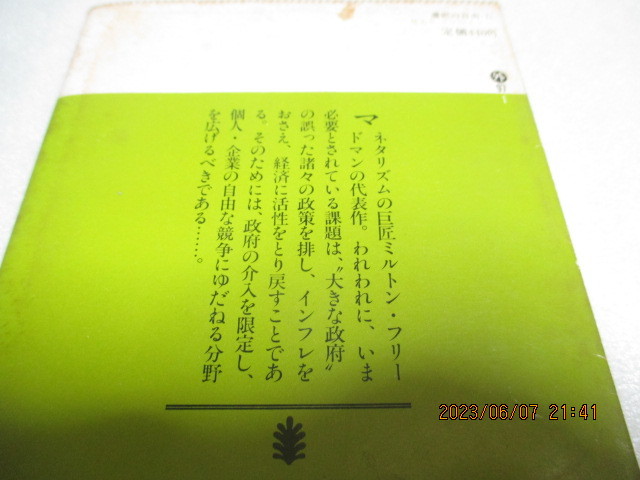 マネタリズムの巨匠ミルトン・フリー
ドマンの代表作。われわれに、いま
必要とされている課題は、〝大きな政府〟
の誤った諸々の政策を排し、インフレを
おさえ、経済に活性をとり戻すことであ
る。そのためには、政府の介入を限定し、
個人・企業の自由な競争にゆだねる分野
を広げるべきである……。
2023/06/07 21:41